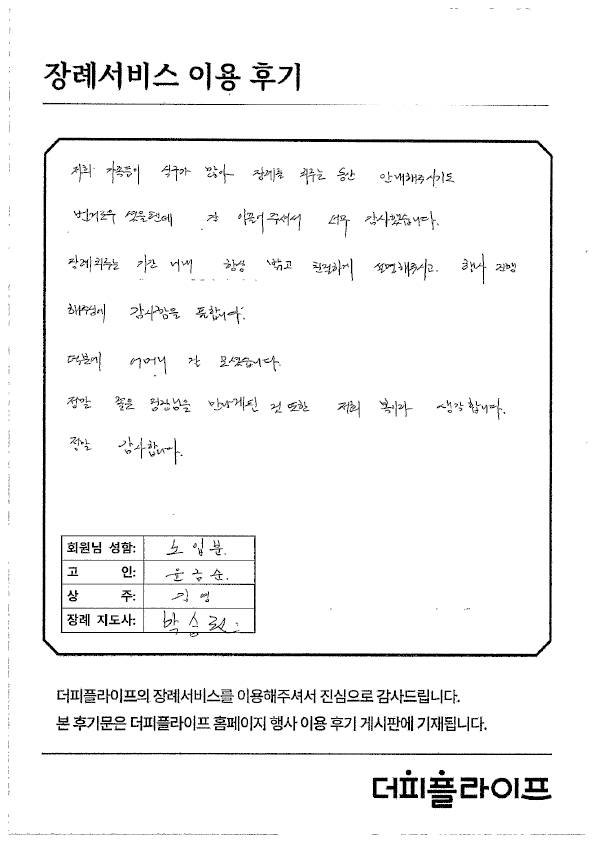 장례서비스 이용 후기
저희 가족들이 식구가 많아 장례를 치루는 동안 안내해주시기도
번거로우 셨을텐데 잘 이끌어주셔서 너무 감사했습니다.
장례치루는 기간 내내 항상 밝고 친절하게 설명해주시고 행사 진행
해주심에 감사함을 표합니다.
덕분에 어머니 잘 모셨습니다.
정말 좋은 팀장님을 만나게된 것 또한 저희 복이라 생각합니다.
정말 감사합니다.
회원님 성함: 노입분.
고 인: 윤금순.
상 주: 김영
장례 지도사: 박승
더피플라이프의 장례서비스를 이용해주셔서 진심으로 감사드립니다.
본 후기문은 더피플라이프 홈페이지 행사 이용 후기 게시판에 기재됩니다.
더피플라이프